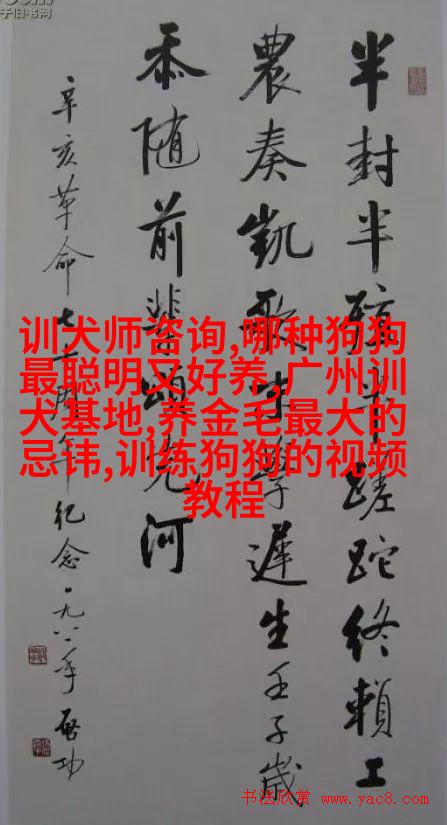 训犬师咨询,哪种狗狗
最聪明又好养,广州训
犬基地,养金毛最大的
忌讳,训练狗狗的视频
教程
半封半殖半蹉跎终賴工
農奏凱歌末學遲生壬子歲
忝随前輩頌先河
辛亥革命七十周年纪念一九八一年启功
书法欣赏 www.yac8.com